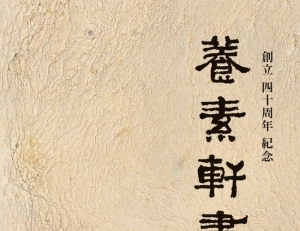 創立 四十周年 紀念
養素軒書